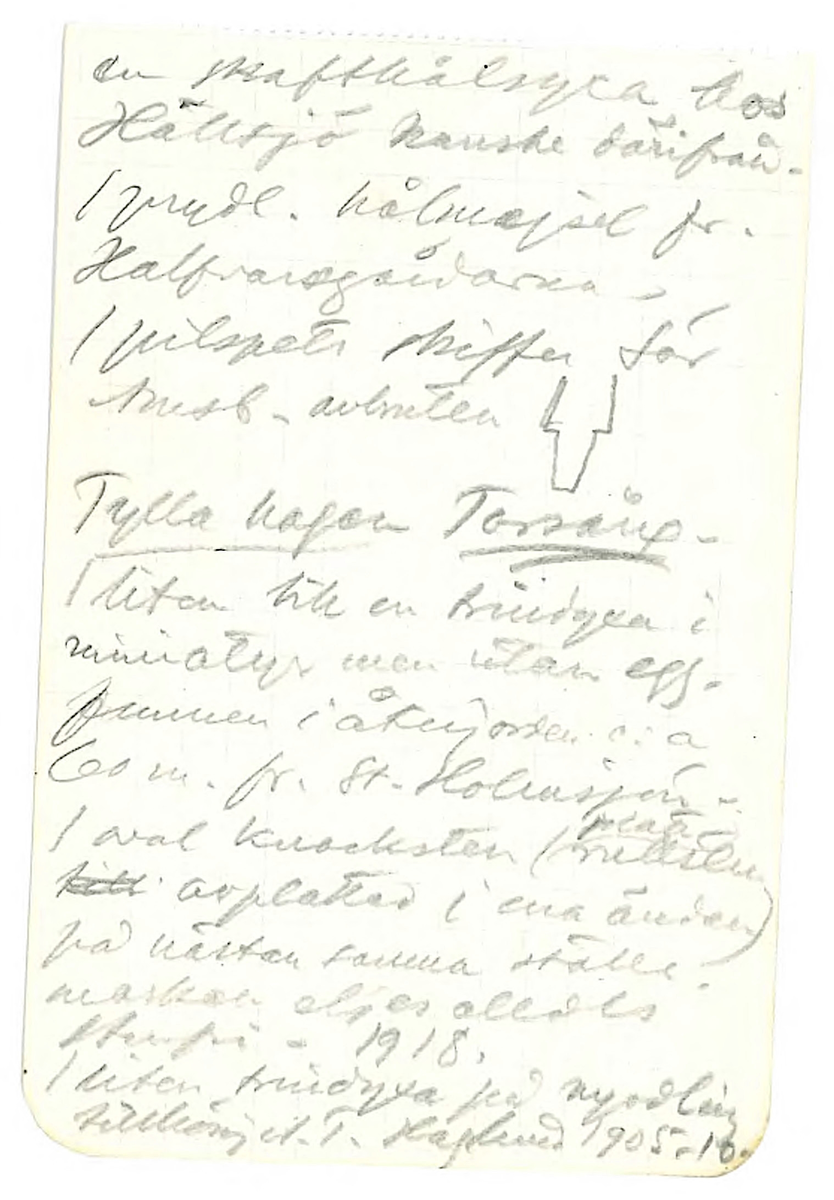 en skafthålsyxa hos
Hällsjö kanske därifrån.
1 prydl. hålmejsel fr.
Halfvarsgårdarna,
1 pilspets skiffer för
avbruten
Tylla hagen Torsång.
1 liten till en trindyxa i
miniatyr men utan egg.
funnen i åkerjorden c:a
60 m. fr. St. Holmsjön.
1 oval knacksten (rullsten
avplattad i ena ändan)
på nästan samma ställe.
marken eljes alldeles
stenfri. 1918.
1 liten trindyxa på nyodling
tillhörig A. T. Haglund 1905-10.